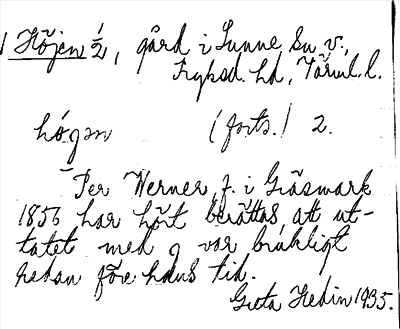 Höjen 1/2, gård i Sunne sn v.,
Fryksd. hd, Värml. l.
hǿgən (forts.) 2.
Per Werner, f. i Gräsmark
1856 har hört berättas att ut-
talet med g var brukligt
redan före hans tid.
Greta Hedin 1935.